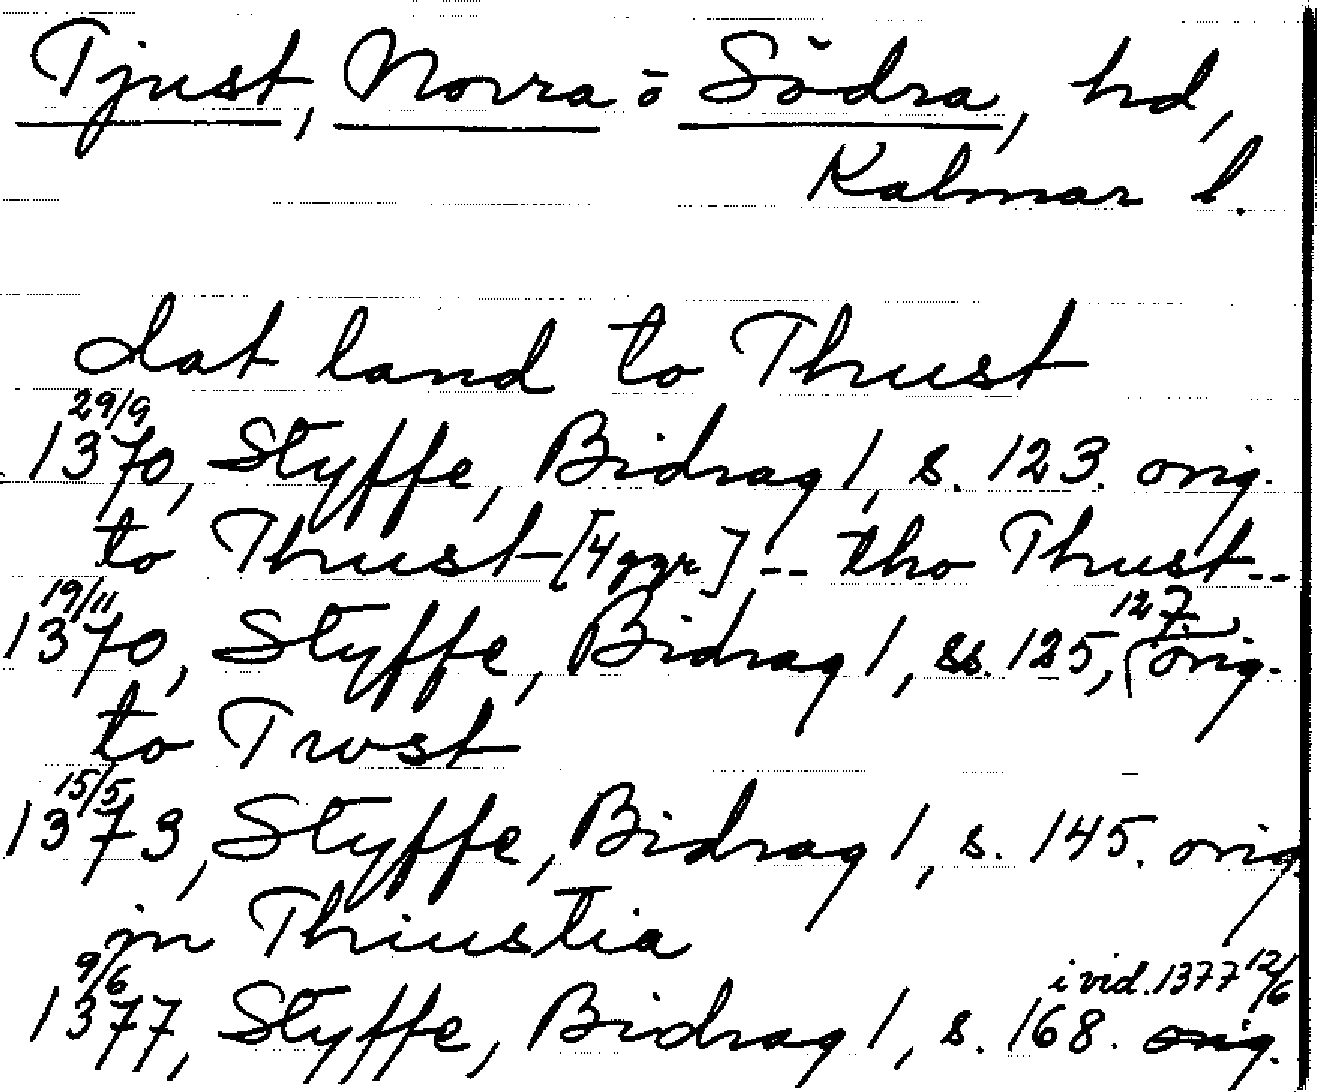 Tjust, Norra o Södra, hd,
Kalmar l.
dat land to Thust
29/9
1370, Styffe, Bidrag 1, s. 123. orig.
to Thust [4 ggr] -- tho Thust --
19/11
1370, Styffe, Bidrag 1, ss. 125, 127. orig.
to Twst
15/5
1373, Styffe, Bidrag 1, s. 145. orig.
in Thiustia
9/6 i vid. 1377 12/6
1377, Styffe, Bidrag 1, s. 168. orig.